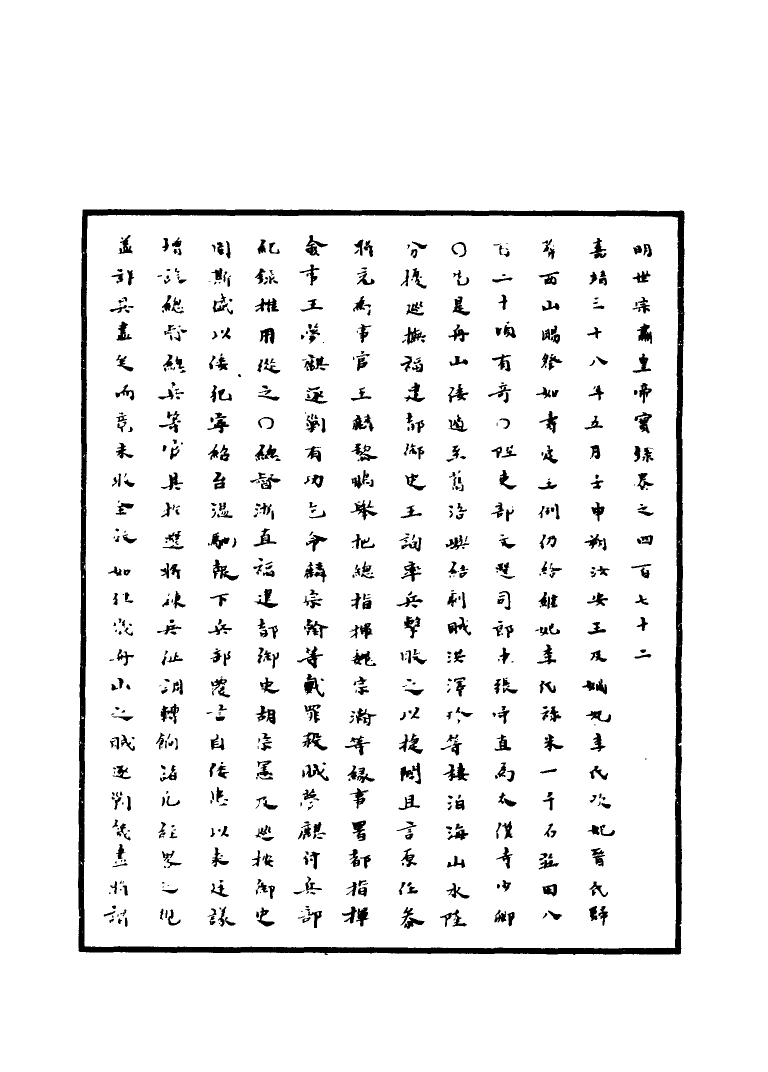 明世宗肅皇帝實錄卷之四百七十二
嘉靖三十八年五月壬申朔汝安王及嫡妃李氏次妃晉氏歸
葬西山賜祭如壽定王例仍給繼妃李氏祿米一千石莊田八
百二十頃有奇○陞吏部文選司郎中張守直為太僕寺少卿
○先是舟山倭過至舊浯嶼結剿賊洪澤珍等棲泊海山水陸
分擾巡撫福建都御史王詢率兵擊敗之以捷聞且言原任參
將充為事官王麟黎鵬舉把總指揮魏宗瀚等緣事署都指揮
僉事王夢麒逐剿有功乞令麟宗瀚等戴罪殺賊夢麒付兵部
紀錄推用從之○總督浙直福建都御史胡宗憲及巡按御史
周斯盛以倭犯寧紹台溫馳報下兵部覆言自倭患以來廷議
增設總督總兵等官其於選將練兵征調轉餉諸凡經畧之
蓋詳具盡矣而竟未收全效如往歲舟山之賊逐剿幾盡將謂